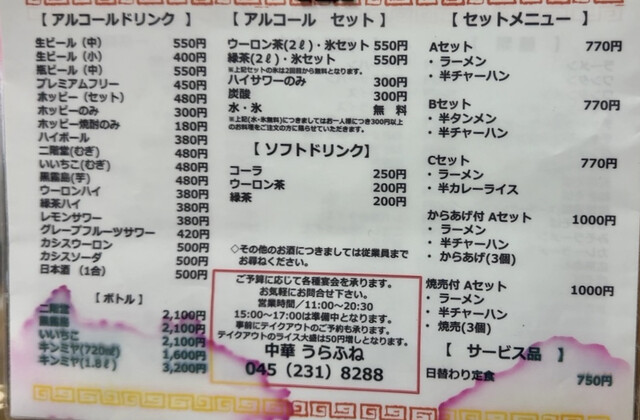 【 アルコールドリンク 】
生ビール（中） 550円
生ビール（小） 400円
瓶ビール（中） 550円
プレミアムフリー 450円
ホッピー（セット） 480円
ホッピーのみ 300円
ホッピー焼酎のみ 180円
ハイボール 380円
二階堂(むぎ) 480円
いいちこ(むぎ) 480円
黒霧島(芋) 480円
ウーロンハイ 380円
緑茶ハイ 380円
レモンサワー 380円
グレープフルーツサワー 420円
カシスウーロン 500円
カシスソーダ 500円
日本酒 （1合） 500円
【 ボトル 】
二階堂 2,100円
黒霧島 2,100円
いいちこ 2,100円
キンミヤ(720㎖) 1,600円
キンミヤ(1.8ℓ) 3,200円
【 アルコール　セット 】
ウーロン茶(2ℓ)・氷セット 550円
緑茶(2ℓ)・氷セット 550円
※上記セットの氷は2回目から無料となります。
ハイサワーのみ 300円
炭酸 300円
水・氷 無料
※上記(水・氷無料)につきましてはお一人様につき300円以上
のお料理をご注文の方に限らせていただきます。
【 ソフトドリンク 】
コーラ 250円
ウーロン茶 200円
緑茶 200円
◇その他のお酒につきましては従業員まで
お尋ねください。
ご予算に応じて各種宴会を承ります。
お気軽にお問合せ下さい。
営業時間/11:00～20:30
15:00～17:00は準備中となります。
事前にテイクアウトのご予約も承ります。
テイクアウトのライス大盛は50円増しとなります。
中華 うらふね
045（231）8288
【 セットメニュー 】
Aセット 770円
・ラーメン
・半チャーハン
Bセット 770円
・半タンメン
・半チャーハン
Cセット 770円
・ラーメン
・半カレーライス
からあげ付 Aセット 1000円
・ラーメン
・半チャーハン
・からあげ(3個)
焼売付 Aセット 1000円
・ラーメン
・半チャーハン
・焼売(3個)
【　サービス品　】
日替わり定食 750円